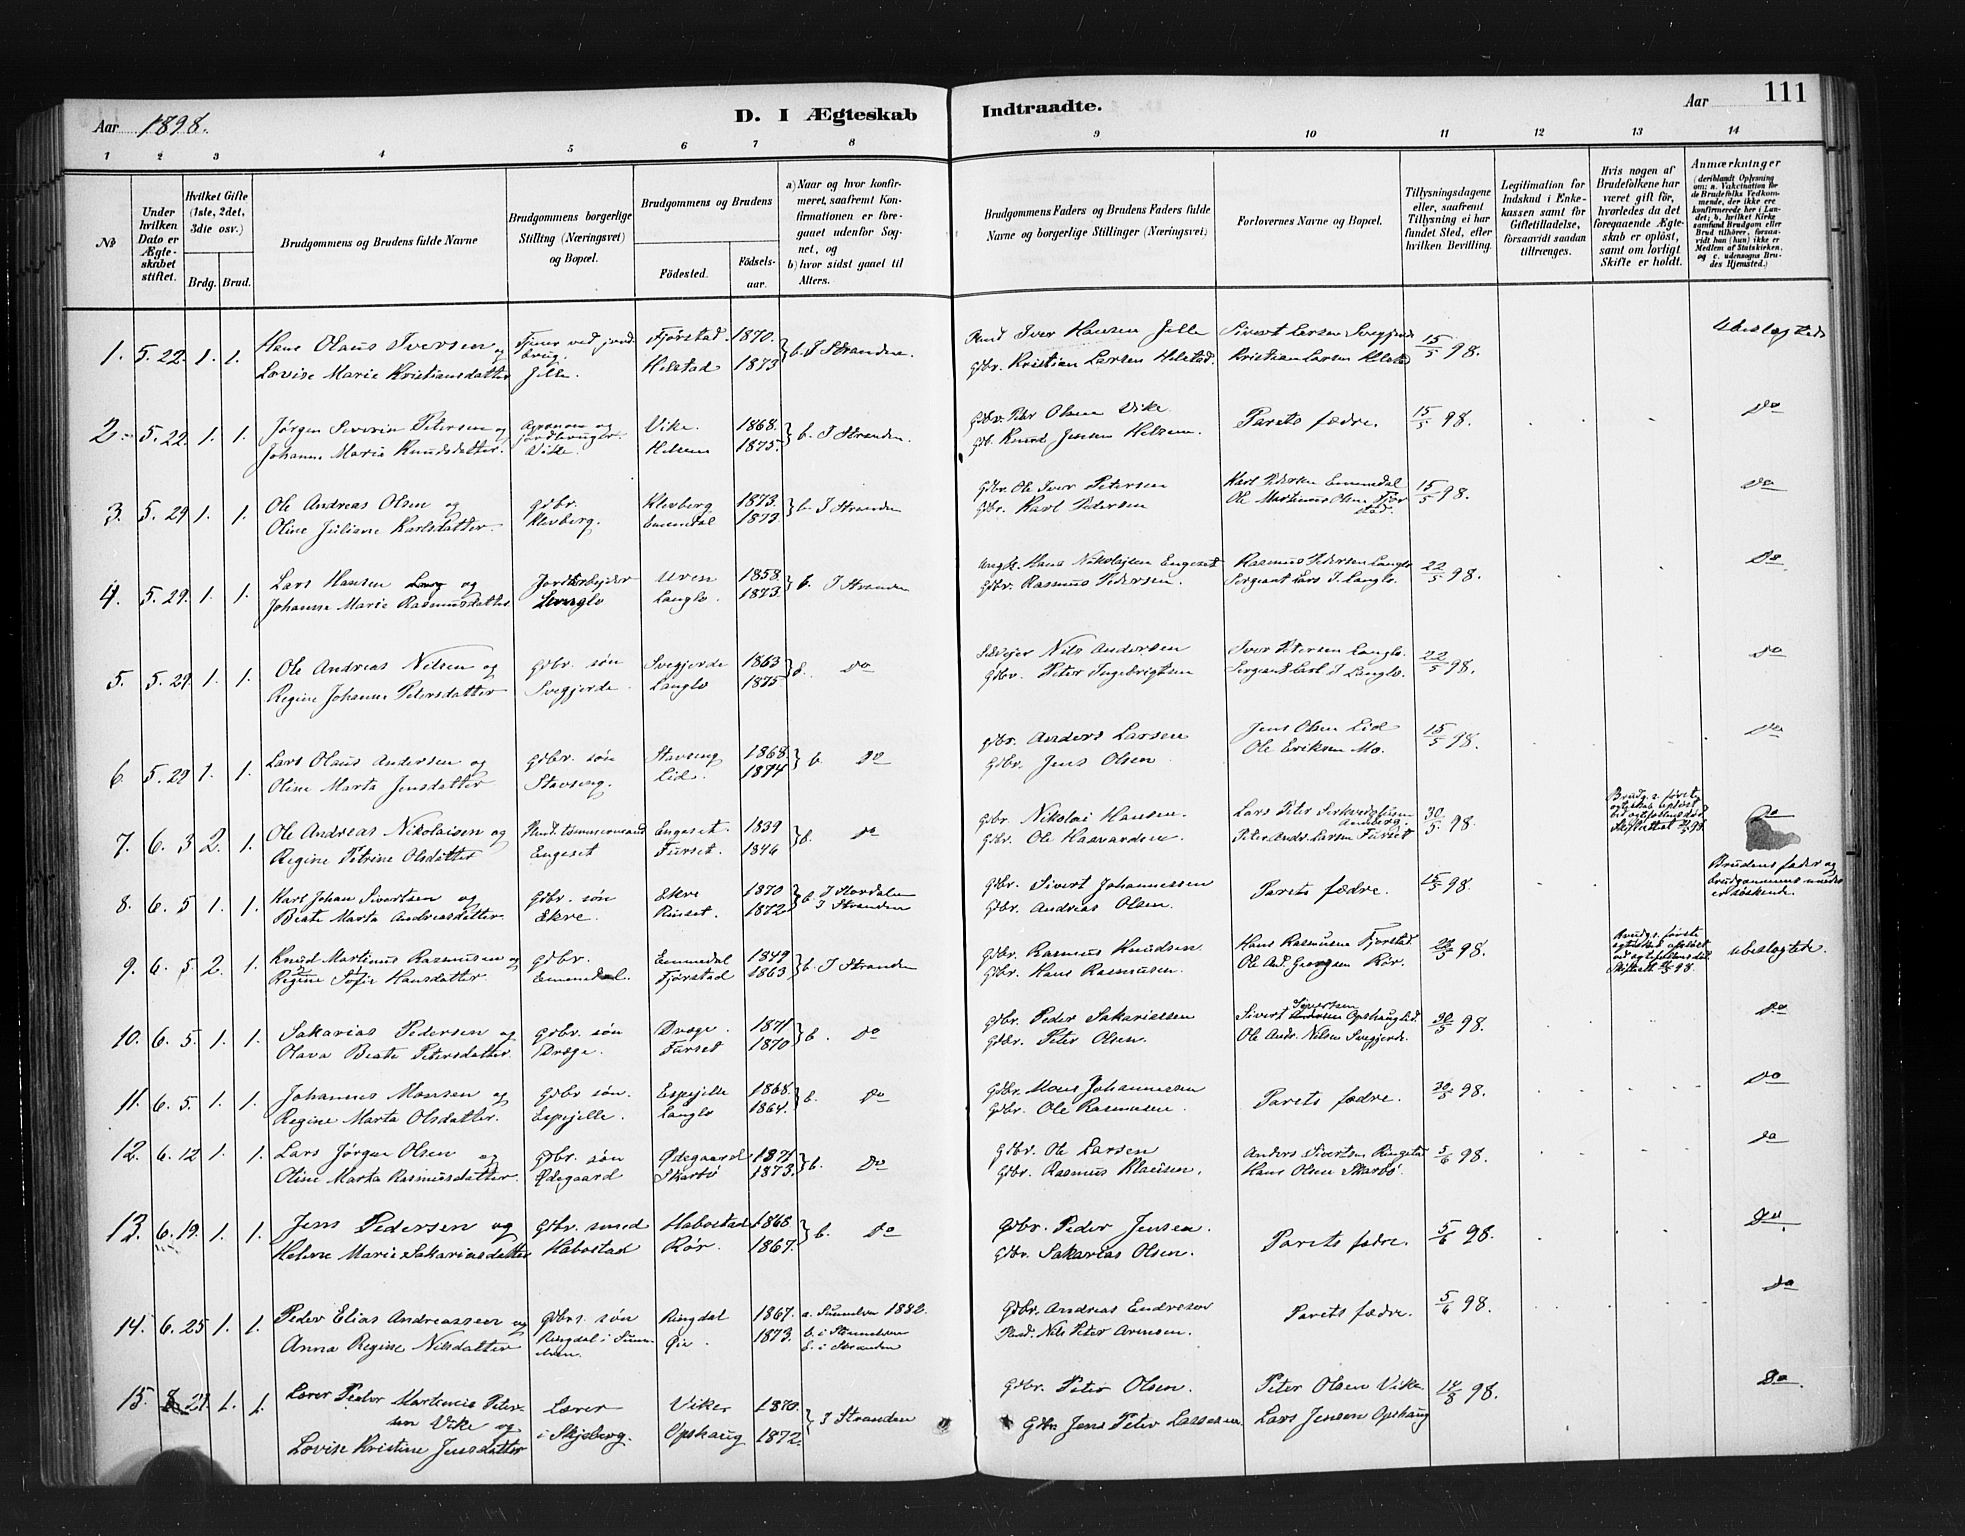 Aar 1898.
D. I Ægteskab Indtraadte.
Aar 111
1 2 3 4 5 6 7 8 9 10 11 12 13 14
№
Under hvilken Dato er Ægteskabet stiftet.
Hvilket Gifte (1ste, 2det, 3die osv.)
Brdg. Brud.
Brudgommens og Brudens fulde Navne
Brudgommens borgerlige Stilling (Næringsvei) og Bopæl.
Brudgommens og Brudens
Fødested. Fødselsaar.
a) Naar og hvor konfirmeret, saafremt Konfirmationen er foregaaet udenfor Sognet, og
b) hvor sidst gaaet til Alters.
Brudgommens Faders og Brudens Faders fulde Navne og borgerlige Stillinger (Næringsvei)
Forlovernes Navne og Bopæl.
Tillysningsdagene eller, saafremt Tillysning ei har fundet Sted, efter hvilken Bevilling.
Legitimation for Indskud i Enkekassen samt for Giftetilladelse, forsaavidt saadan tiltrænges.
Hvis nogen af Brudefolkene har været gift før, hvorledes da det foregaaende Ægteskab er opløst, samt om lovligt Skifte er holdt.
Anmærkninger (deriblandt Oplysning om: a. Vakcination for de Brudefolks Vedkommende, der ikke ere konfirmerede her i Landet; b. hvilket Kirkesamfund Brudgom eller Brud tilhører, forsaavidt han (hun) ikke er Medlem af Statskirken, og c. udensogns Brudes Hjemsted.)
1. 5. 22. 1. 1. Hans Olaus Iversen og Fjørstad. 1870. b. I Stranden. Iver Hansen Jille Sivert Larsen Svegjerde 15/5 98. Ubeslægtede
Lovise Marie Kristiansdatter Jille. Helstad 1873 Gdbr. Kristian Larsen Helstad. Kristian Larsen Helstad
2. 5. 22. 1. 1. Jørgen Severin Petersen og Agronom og jordbruger Vike. 1868. b. I Stranden. Gdbr. Peter Olsen Vike. Parets fædre. 15/5 98. Do
Johanne Marie Knudsdatter. Vike. Helsem 1875. Gdb. Knud Jensen Helsem.
3. 5. 29 1. 1. Ole Andreas Olsen og Gdbr. Klevberg 1873. b. I Stranden Gdbr. Ole Iver Petersen Karl Pedersen Emmedal 15/5 98. Do
Oline Juliane Karlsdatter. Klevberg. Emmedal 1873 Gdbr. Karl Pedersen Ole Martinus Olsen Fjørstad.
4. 5. 29. 1. 1. Lars Hansen og Uren 1858. b. I Stranden Hans Nikolajsen Engeset Rasmus Pedersen Langlo 22/5 98. Do
Johanne Marie Rasmusdatter Langlo Langlo. 1873. Gdbr. Rasmus Pedersen. Sergeant Lars I. Langlo.
5. 5. 29 1. 1. Ole Andreas Nilsen og Gdbr. søn Svegjerde 1863 b. Do Nils Andersen Iver Petersen Langlo. 22/5 98. Do
Regine Johanne Petersdatter Svegjerde. Langlo 1875 Gdbr. Peter Ingebrigtsen Sergeant Carl I Langlo.
6. 5. 29 1. 1. Lars Olaus Andersen og Gdbr. søn Stavseng 1868. b. Do Gdbr. Anders Larsen Jens Olsen Lid 15/5 98. Do
Oline Marta Jensdatter Stavseng. Lid. 1874 Gdbr. Jens Olsen Ole Eriksen Mo.
7. 6. 3 2. 1. Ole Andreas Nikolaisen og tømmermand Engeset. 1839 b. Do Gdbr. Nikolai Hansen. Lars Peter 30/5 98. Do
Regine Petrine Olsdatter Engeset Furset. 1846 Gdbr. Ole Haavardsen Peter Andr. Larsen Furset
8. 6. 5 1. 1. Karl Johan Sivertsen og Gdbr. søn Ekre 1870 b. I Nordalen Gdbr. Sivert Johannessen Parets fædre. 15/5 98. Brudens fader og brudgommens moder er søskende.
Beate Marta Andreasdatter. Ekre. Rinset. 1872 I Stranden Gdbr. Andreas Olsen.
9. 6. 5 2. 1. Knud Martinus Rasmusen og Gdbr. Emmedal 1849 b. I Stranden Gdbr. Rasmus Knudsen Hans Rasmusen Fjørstad. 98. Brudg. første egteskab opløst ved ubeslegtede.
Regine Sofie Hansdatter. Emmedal. Fjørstad 1863 Gdbr. Hans Rasmusen. Ole And. Georgsen Rør.
10. 6. 5. 1. 1. Sakarias Pedersen og Gdbr. søn Dræge. 1871 b. Do Gdbr. Peder Sakariassen Sivert Sivertsen Opshauglid. 30/5 98. Do
Olava Beate Petersdatter. Dræge. Furset 1870 Gdbr. Peter Olsen. Ole Andr. Nilsen Svegjerde.
11. 6. 5. 1. 1. Johannes Monsen og Gdbr søn. Espejille 1868. b. Do Gdbr. Mons Johannessen Parets fædre. 30/5 98. Do
Regine Marta Olsdatter. Espejille. Langlo 1864. Gdbr. Ole Rasmusen.
12. 6. 12 1. 1. Lars Jørgen Olsen og Gdbr. søn Ødegaard 1871 b. Do Gdbr. Ole Larsen Anders Sivertsen Ringstad 5/6 98. do
Oline Marta Rasmusdatter. Ødegaard Skarbø 1873. Gdbr. Rasmus Klausen. Hans Olsen Skarbø.
13. 6. 19. 1. 1. Jens Pedersen og Gdbr. smed Habostad 1868 b. Do Gdbr. Peder Jensen. Parets fædre. 5/6 98. Do.
Helene Marie Sakariasdatter Habostad Rør. 1867. Gdbr. Sakarias Olsen.
14. 6. 25 1. 1. Peder Elias Andreassen og Gdbr. søn Ringdal 1867. a. Sunnelven 1882. Gdbr. Andreas Endresen Parets fædre. 5/6 98. Do
Anna Regine Nilsdatter Ringdal i Sunnelven. Øie. 1873. b. i Sunnelven b. i Stranden Nils Peter Arnesen.
15. 8 21 1. 1. Lærer Peder Martinus Petersen Vike og Lærer Viker 1870. I Stranden Gdbr. Peter Olsen. Peter Olsen Vike 14/8 98. Do.
Lovise Kristine Jensdatter i Skjeberg. Opshaug 1872. Gdbr. Jens Peter Lassesen Lars Jensen Opshaug